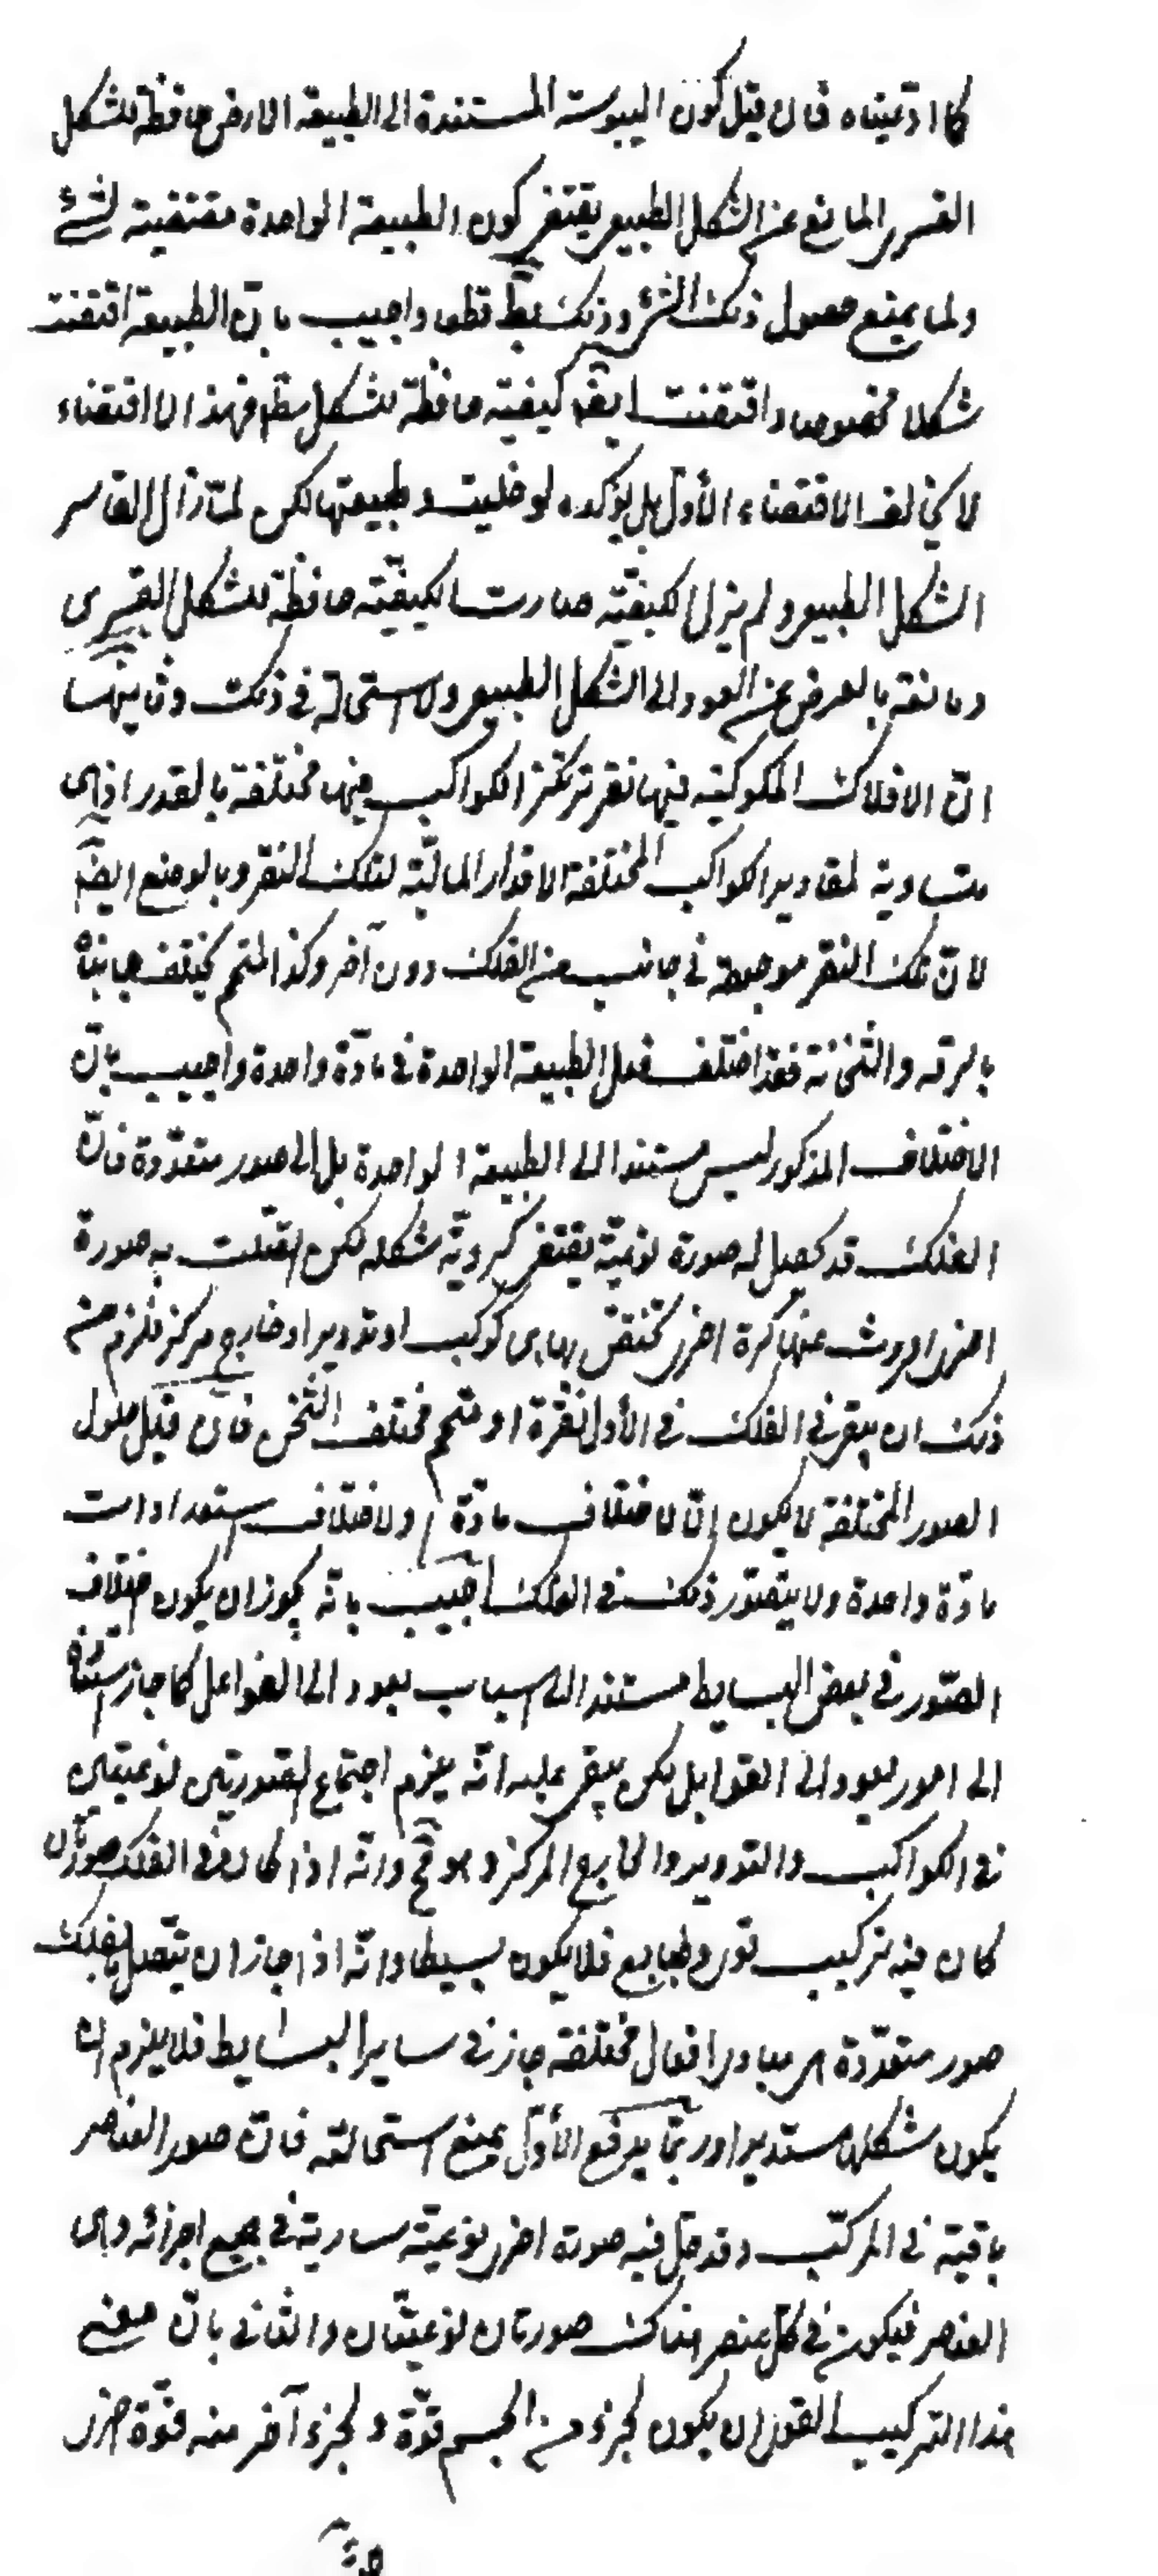 كما ادعيناه فان قيل كون اليبوسة المستندة الى الطبيعة الارض حافظة للشكل
القسرى المانع عن الشكل الطبيعى يقتضى كون الطبيعة الواحدة مقتضية لشئ
ولما يمنع حصول ذلك الشئ وذلك بط قطعا واجيب بان الطبيعة اقتضت
شكلا مخصوصا واقتضت ايضا كيفية حافظة للشكل مط فهذا الاقتضاء
لا يخالف الاقتضاء الأول بل يؤكده لو خليت وطبيعتها لكن لما زال القاسر
الشكل الطبيعى ولم يزل الكيفية صارت الكيفية حافظة للشكل القسرى
ومانعة بالعرض عن العود الى الشكل الطبيعى ولا استحالة فى ذلك وثانيها
ان الافلاك المكوكبة فيها نقر ترتكز الكواكب فيها مختلفة بالقدر اذ هى
متساوية لمقادير الكواكب المختلفة الاقدار المالئة لتلك النقر وبالوضع ايضا
لان تلك النقر موجودة فى جانب من الفلك دون آخر وكذا المتمم يختلف جانباه
بالرقة والثخانة فقد اختلف فعل الطبيعة الواحدة فى مادة واحدة واجيب بان
الاختلاف المذكور ليس مستندا الى الطبيعة الواحدة بل الى صور متعددة فان
الفلك قد حصل له صورة نوعية يقتضى كروية شكله لكن اتصلت به صورة
اخرى افرزت عنها كرة اخرى تختص بها هى كوكب او تدوير او خارج مركز فلزم من
ذلك ان يبقى فى الفلك فى الأول نقرة او متمم مختلف الثخن فان قيل حلول
الصور المختلفة لا يكون الا لاختلاف مادة او لاختلاف استعدادات
مادة واحدة ولا يتصور ذلك فى الفلك اجيب بانه يجوز ان يكون اختلاف
الصور فى بعض البسايط مستندا الى اسباب يعود الى الفواعل كما جاز استناده
الى امور يعود الى القوابل لكن يبقى عليه انه يلزم اجتماع الصورتين نوعيتين
فى الكواكب والتدوير والخارج المركز وهو مح وانه اذا كان فى الفلك صورتان
كان فيه تركيب قوى وطبايع فلا يكون بسيطا وانه اذا جاز ان يتصل بالفلك
صور متعددة هى مبادى افعال مختلفة جاز فى ساير البسايط فلا يلزم ان
يكون شكلها مستديرا وربما يدفع الأول بمنع استحالته فان صور العناصر
باقية فى المركب وقد حل فيه صورة اخرى نوعية سارية فى جميع اجزائه وهى
العناصر فيكون فى كل عنصر هناك صورتان نوعيتان والثانى بان معنى
هذا التركيب القوى ان يكون لجزء من الجسم قوة ولجزء آخر منه قوة اخرى